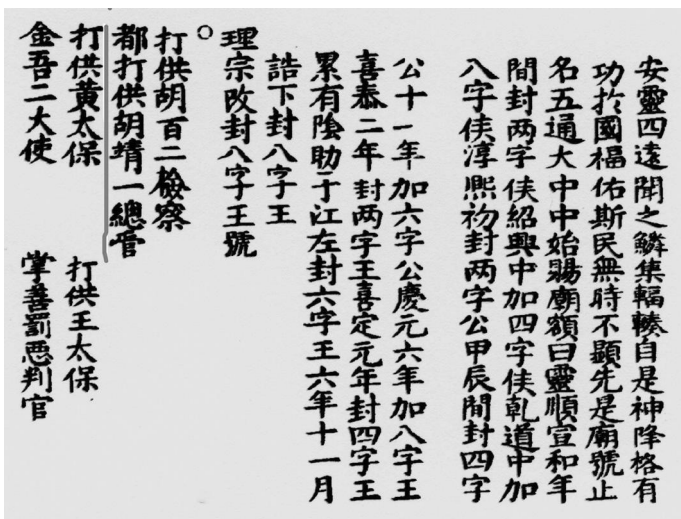 安靈四遠聞之鱗集輻輳自是神降格有
功扵國福佑斯民無時不顯先是廟號止
名五通大中中始賜廟額曰靈順宣和年
間封两字侯紹興中加四字侯乹道中加
八字侯淳熈初封两字公甲辰間封四字
公十一年加六字公慶元六年加八字王
喜泰二年封两字王喜定元年封四字王
累有隂助于江左封六字王六年十一月
誥下封八字王
理宗改封八字王號
○
打供胡百二檢察
都打供胡靖一總管
打供黃太保 打供王太保
金吾二大使 掌善罰惡判官